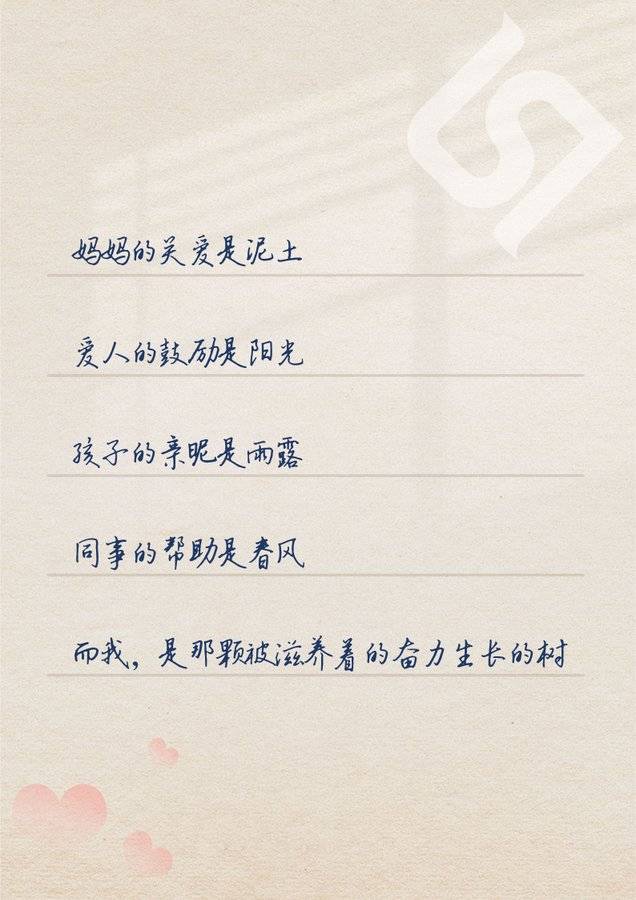 妈妈的关爱是泥土
爱人的鼓励是阳光
孩子的亲昵是雨露
同事的帮助是春风
而我，是那颗被滋养着的奋力生长的树